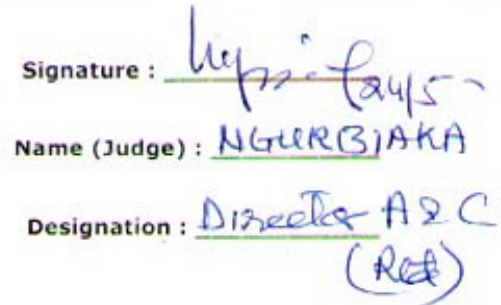 Signature :
Name (Judge) : NGURBIAKA
Designation : Director A & C
(Retd)